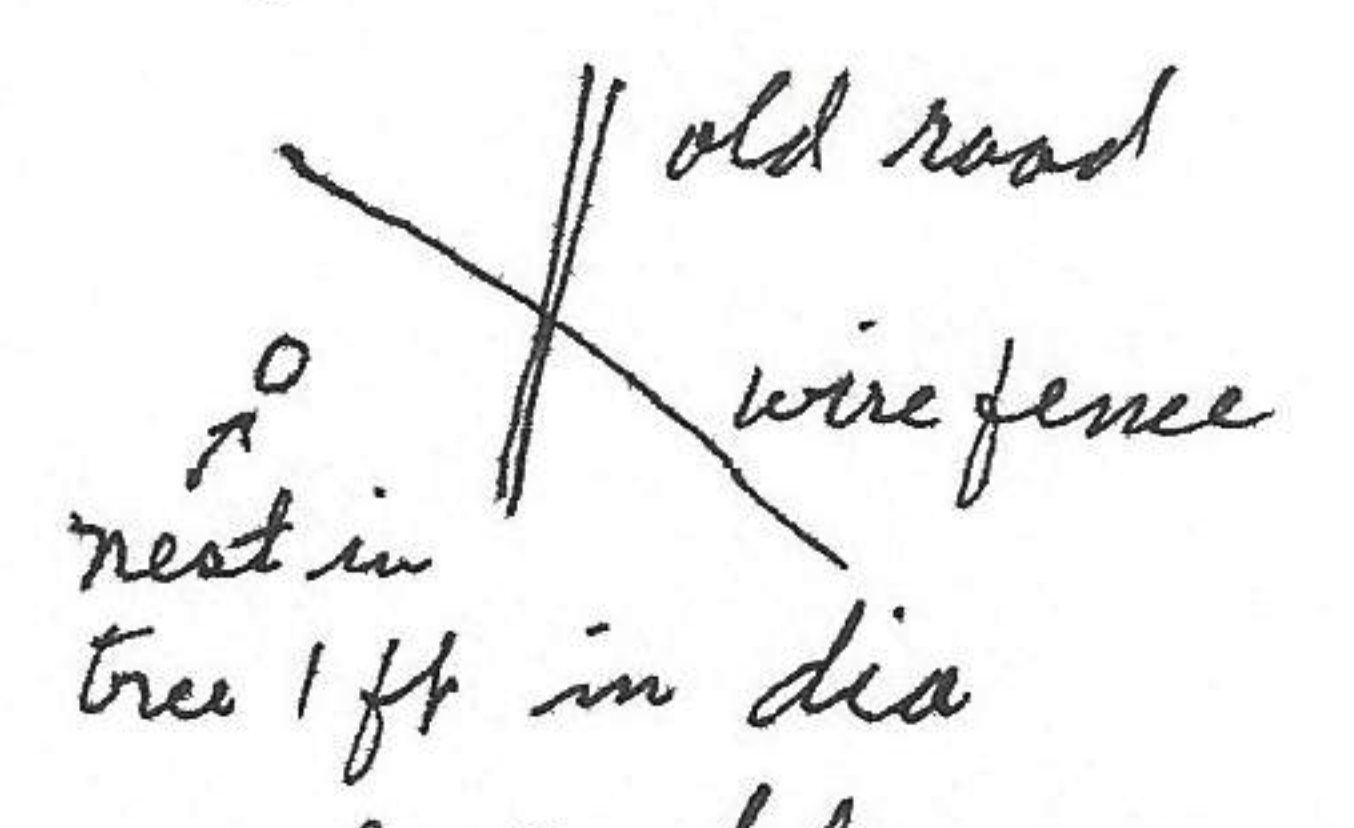 old road
wire fence
nest in
tree 1 ft in dia